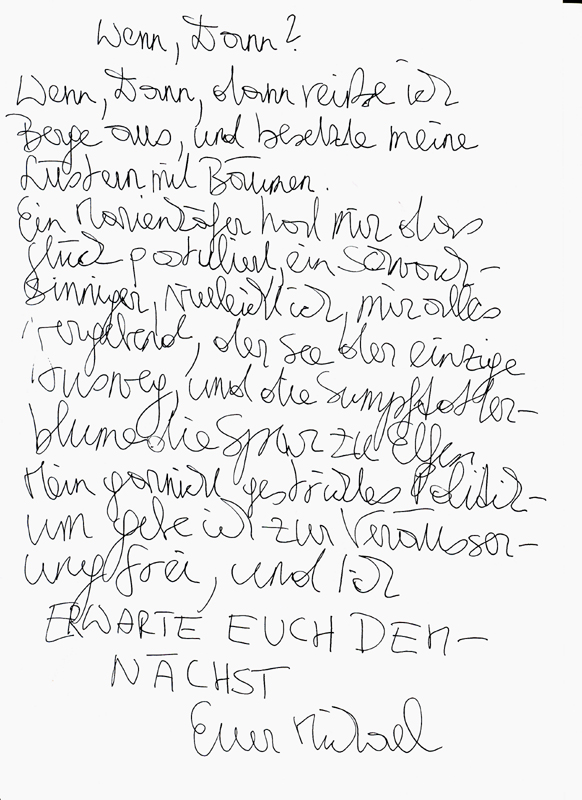 Wenn, Dann?
Wenn, Dann, dann reiße ich
Berge aus, und besetzte meine
Lüstern mit Bäumen.
Ein Marienkäfer hat mir das
Glück postuliert, ein Schwach-
sinniger, vielleicht ich, mir alles
vergebend, der See der einzige
Ausweg, und die Sumpfdotter-
blume die Spur zu Elfen
Mein garnicht gestriges Politik-
um gebe ich zur Veräusser-
ung frei, und Ich
ERWARTE EUCH DEM-
NÄCHST
Euer Michael